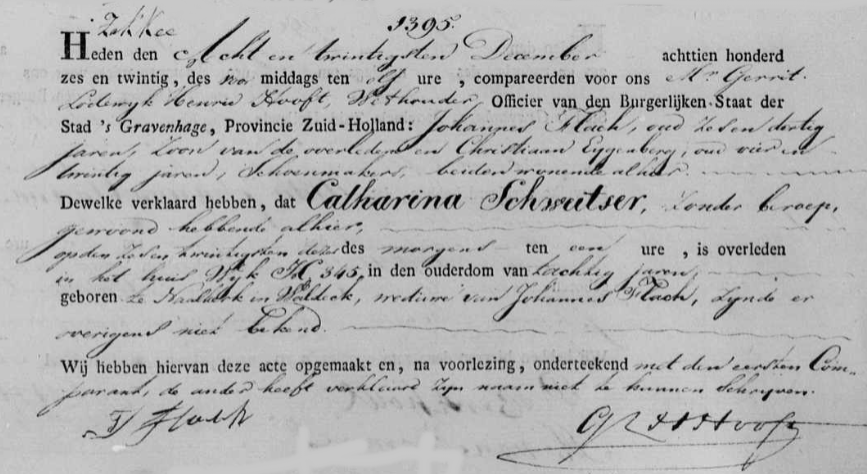 1395.
Heden den Acht en twintigsten December achttien honderd
zes en twintig, des voor middags ten elf ure , compareerden voor ons Mr. Gerrit
Lodewyk Henric Hooft, Wethouder, Officier van den Burgerlijken Staat der
Stad 's Gravenhage, Provincie Zuid-Holland: Johannes Flach, oud zes en dertig
jaren, Zoon van de overledene en Christiaan Eggenberg, oud vier en
twintig jaren, Schoenmakers, beiden wonende alhier.
Dewelke verklaard hebben, dat Catharina Schweitser, zonder beroep,
gewoond hebbende alhier,
op den zes en twintigsten dezer des morgens ten een ure , is overleden
in het huis Wyk H 345, in den ouderdom van tachtig jaren,
geboren te in Waldeck, weduwe van Johannes Flach, zynde er
overigens niet bekend.
Wij hebben hiervan deze acte opgemaakt en, na voorlezing, onderteekend met den eersten Com-
parant, de ander heeft verklaard zyn naam niet te kunnen Schryven.
Flach
GLH Hooft